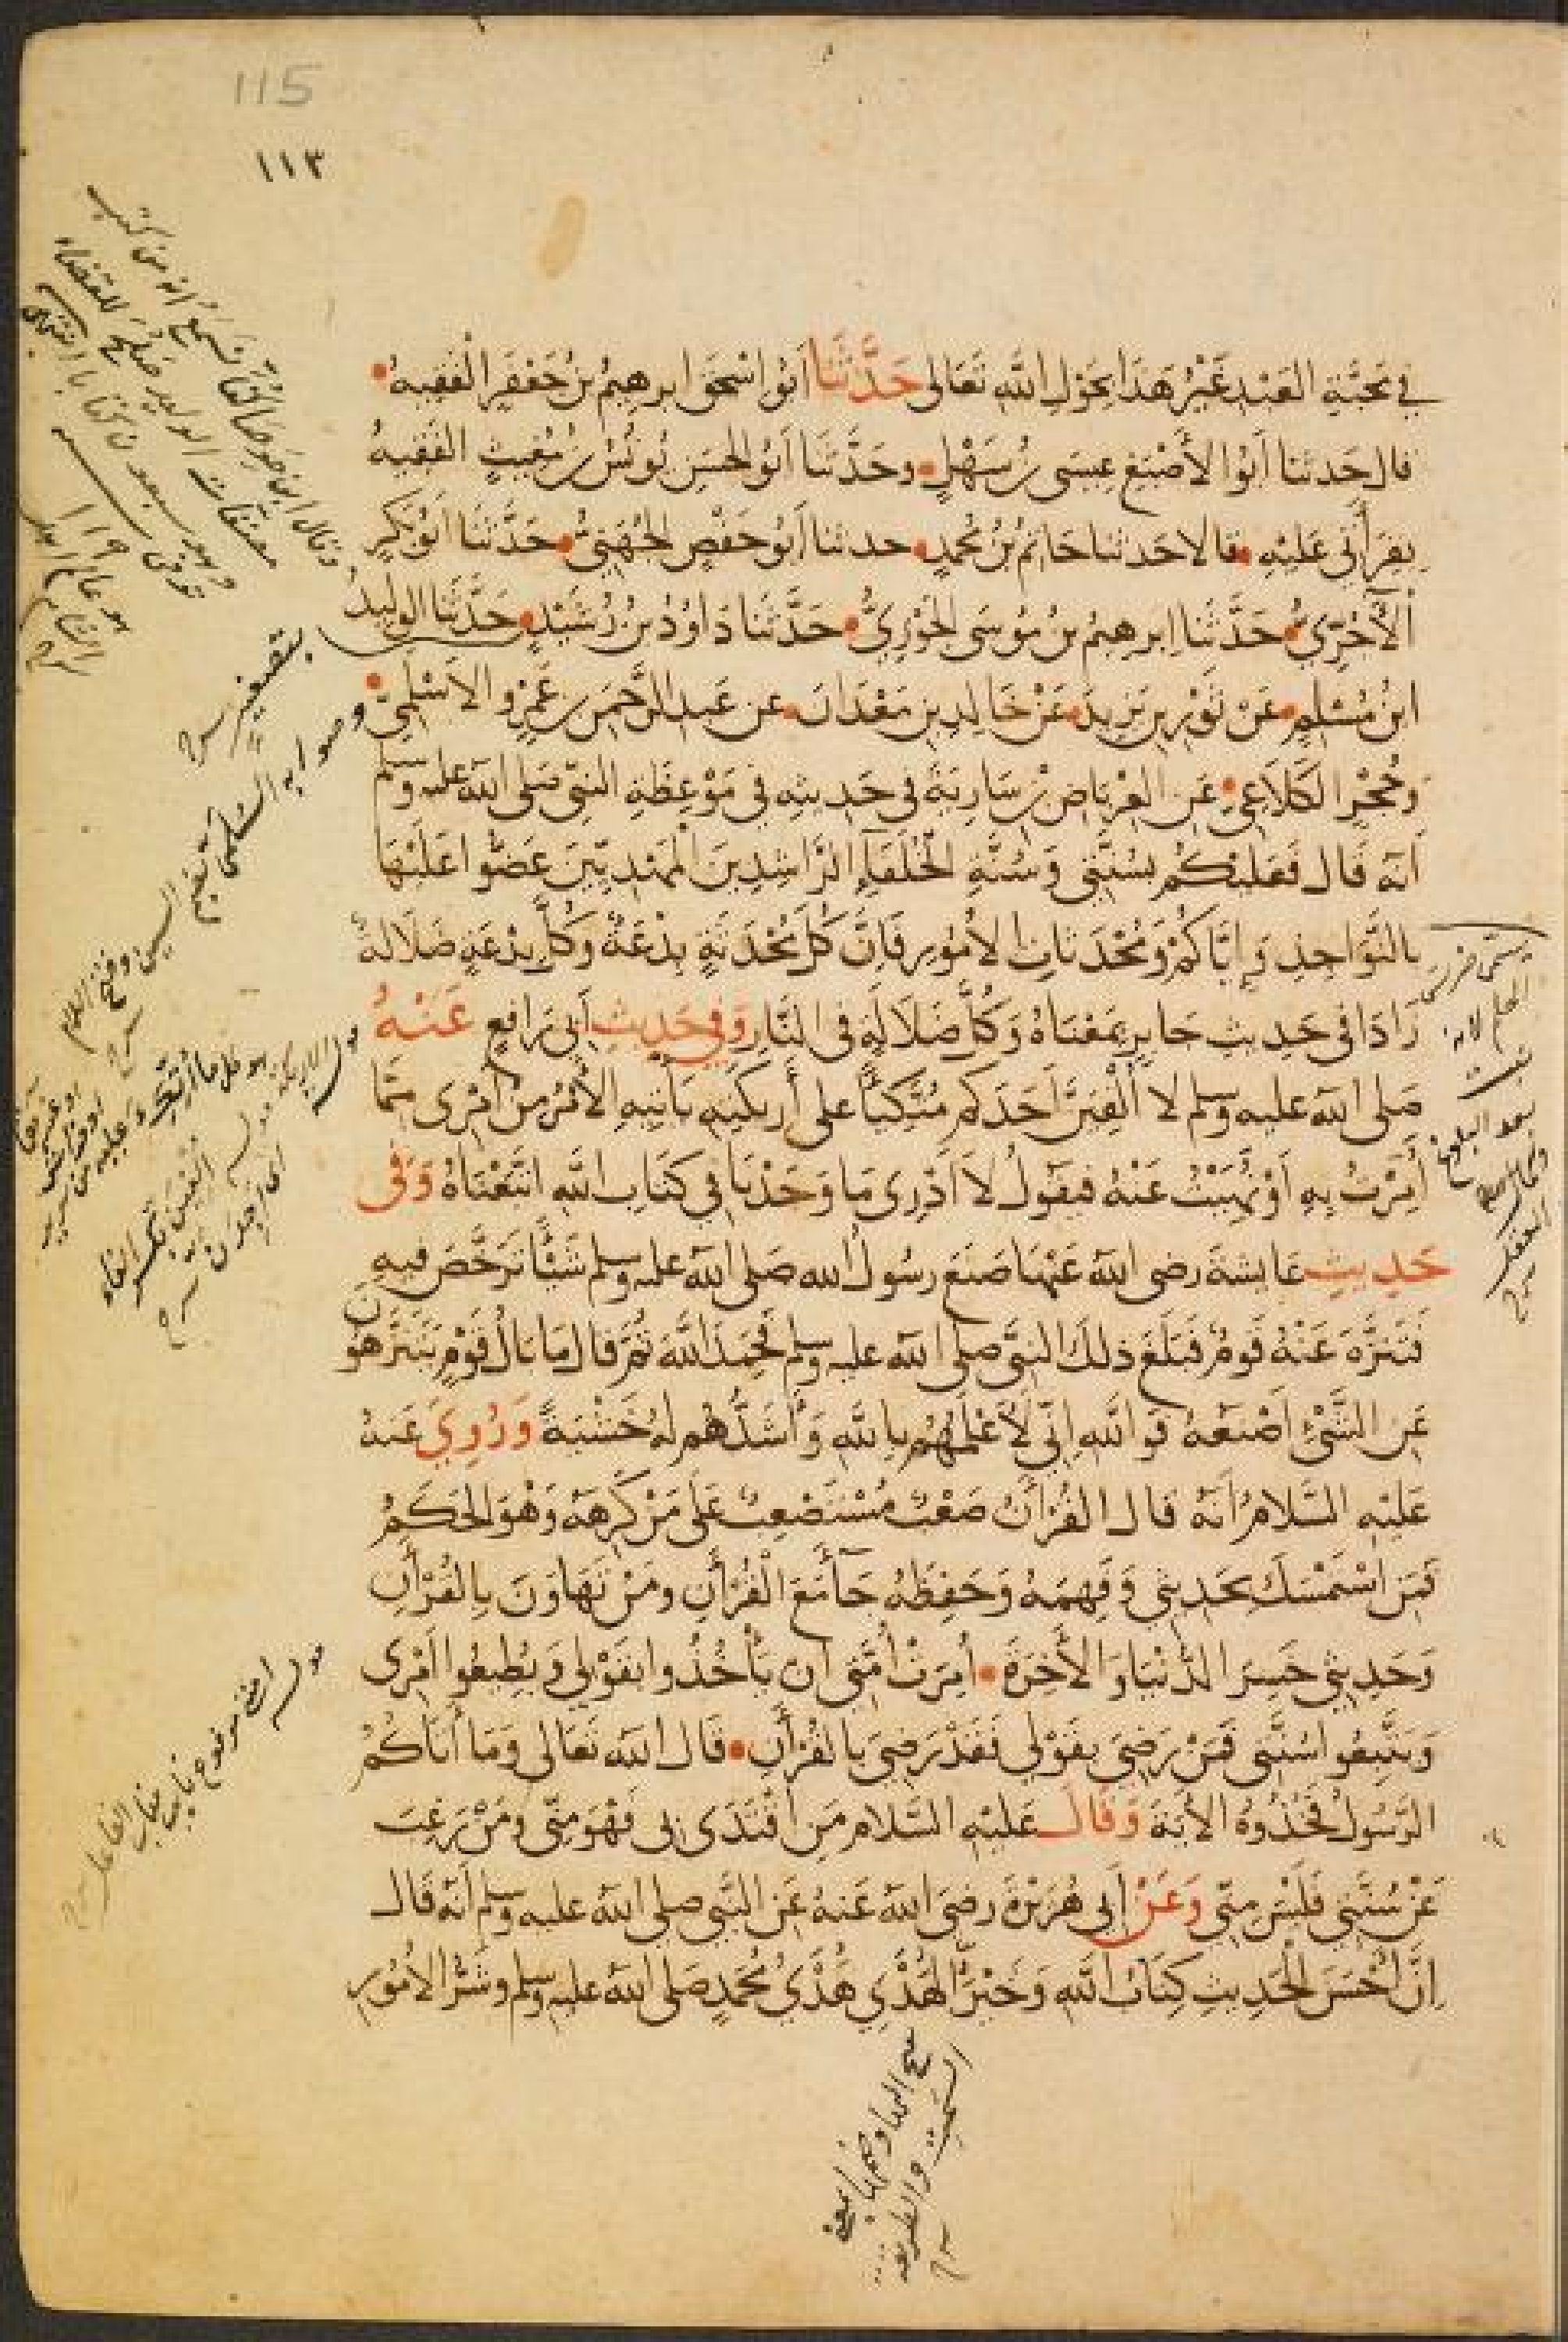 115
١١٣
في محبَّةِ العَبْدِ غَيْرُ هَذَا بِحَوْلِ اللَّهِ تَعَالى حَدَّثَنَا أَبُو اسْحٰق ابرهيمُ بنُ جَعْفَرٍ الْفَقِيهُ
قال حَدثنا أَبُو الأَصْبَغ عِيسَى بنُ سَهْلٍ وحَدَّثنَا أَبُو الحسَنِ يُونُسُ بنُ مُغِيثٍ الفَقِيهُ
بِقرَأَتي عَلَيْهِ قالا حَدثنا حَاتمُ بْنُ مُحمدٍ حدثنا أَبُو حَفْصٍ الجُهَنِيُّ حَدَّثنَا أَبُو بَكْرٍ
اَلْآجُرِّيُّ حَدَّثَنا اِبرهِيمُ بنُ مُوسَى الجَوْزِيُّ حَدَّثَنا دَاوُدُ بنُ رُشَيْدٍ حَدَّثَنا الوليدُ
ابنُ مُسْلِمٍ عَنْ ثَوْرِ بنِ يَزِيدَ عَنْ خَالِدِ بنِ مَعْدَانَ عن عَبدِ الرَّحمَنِ بنِ عَمْرٍو الاَسْلَمِيّ
وحُجْرٍ الكَلَاعِي عَنِ العِرْبَاضِ بْنِ سَارِيَةَ في حَدِيثِهِ في مَوْعِظَةِ النبيّ صَلى الله عليه وسلم
انه قَال فَعَليْكُمْ بسُنَّتي وَسُنَّةِ الخُلَفَاءِ الرَّاشِدِينَ المَهْدِيّينَ عَضُّوا عَلَيْهَا
بالنَّوَاجِذِ وَإيَّاكُمْ وَمُحْدَثاتِ الاُمُورِ فَإِنَّ كُلَّ مُحْدَثَةٍ بِدْعَةٌ وَكُلَّ بِدْعَةٍ ضَلَالةٌ
زَادَ في حَدِيثِ جَابِرٍ بمَعْنَاهُ وَكُلَّ ضَلَالَةٍ في النَّارِ وَفي حَدِيثِ أَبي رَافِعٍ عَنْهُ
صَلى الله عليه وسلم لا أُلْفِيَنَّ اَحَدَكم مُتَّكِئًا على أَريكَتِهِ يَأتِيهِ الأَمْرُ مِنْ أَمْرِى مِمَّا
أَمَرْتُ بِهِ اَوْ نَهَيْتُ عَنْهُ فيَقُولُ لاَ اَدْرِى مَا وَجَدْنَا في كتَابِ اللَّهِ اتَّبَعْنَاهُ وَفى
حَدِيثِ عَايشةَ رضى الله عَنْها صَنَعَ رسُولُ الله صَلى الله عليه وسلم شَيْئًا تَرَخَّصَ فيهِ
فَتَنَزَّهَ عَنْهُ قَومٌ فَبَلَغَ ذلكَ النبىَّ صلى الله عليه وسلم فَحَمِدَ اللَّهَ ثمَّ قال مَا بَالُ قَوْمٍ يَتَنَزَّهُونَ
عَنِ الشَّىْءِ اَصْنَعُهُ فَوَاللَّهِ اِنّى لَأَعْلَمُهُمْ باللَّهِ وَأَشَدُّهُم لَهُ خَشْيَةً وَرُوِيَ عَنهُ
عَلَيْهِ السَّلَامُ اَنَّهُ قال القُرْأَنُ صَعْبٌ مُسْتَصْعِبٌ عَلَى مَنْ كَرِهَهُ وَهُوَ الحَكَمُ
فَمَنِ اسْتَمْسَكَ بحَدِيثِي وَفَهِمَهُ وَحَفِظَهُ جَآءَ مَعَ الْقُرْأَنِ ومَنْ تَهَاوَنَ بِالقُرْأَنِ
وَحَدِيثي خَسِرَ الدُّنْيَا وَالأَخِرَةَ أُمِرَتْ أُمَّتِي ان يَأْخُذُوا بقَوْلِي وَيُطِيعُوا اَمْرِى
وَيَتَّبِعُوا سُنَّتي فَمَنْ رَضِيَ بقَوْلي فَقَدْ رَضِيَ بالقُرْأَنِ قَال الله تَعَالى وَمَا أَتَاكُمُ
الرَّسُولُ فَخُذُوهُ الاَيَةَ وَقَالَ عَليْهِ السَّلَام مَنِ اقْتَدَى بى فَهْوَ مِنّى ومَنْ رَغِبَ
عَنْ سُنَّتي فَلَيْسَ مِنّي وَعَنْ أَبى هُرَيْرَةَ رضيَ الله عَنهُ عَنِ النَّبي صلى الله عليه وسلم اَنّهُ قَال
اِنَّ أَحْسَنَ الحَدِيثِ كِتَابُ اللَّهِ وَخَيْرَ الهَدْيِ هَدْيُ مُحَمَّدٍ صَلى الله عليه وسلم وشَرَّ الاُمُورِ
بتصغير
وصوابه السلمى بضم السين وفتح اللام
يسمى ضرس
الحلم لانه
ينبت
بعد البلوغ
وكمال
العقل